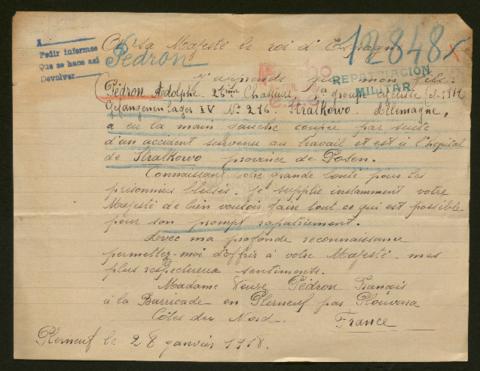 A
Pedir informes
Que se hace así
Devolver
Pédron
12.848
REPATRIACION
MILITAR.
A Sa Majesté le roi d'Espagne
J'apprends que mon fils
Pédron Adolphe, 26ème Chasseurs, groupe
Gefangenen Lager IV N° 216. Stralkowo. Allemagne,
a eu la main gauche coupée par suite
d'un accident survenu au travail et est à l'hôpital
de Stralkowo province de Posen.
Connaissant votre grande bonté pour les
prisonniers blessés. Je supplie instamment votre
Majesté de bien vouloir faire tout ce qui est possible
pour son prompt rapatriement.
Avec ma profonde reconnaissance
permettez-moi d'offrir à votre Majesté mes
plus respectueux sentiments.
Madame Veuve Pédron François
à la Barricade en Plerneuf par Plouvara
Côtes du Nord. France
Plerneuf le 28 janvier 1918.